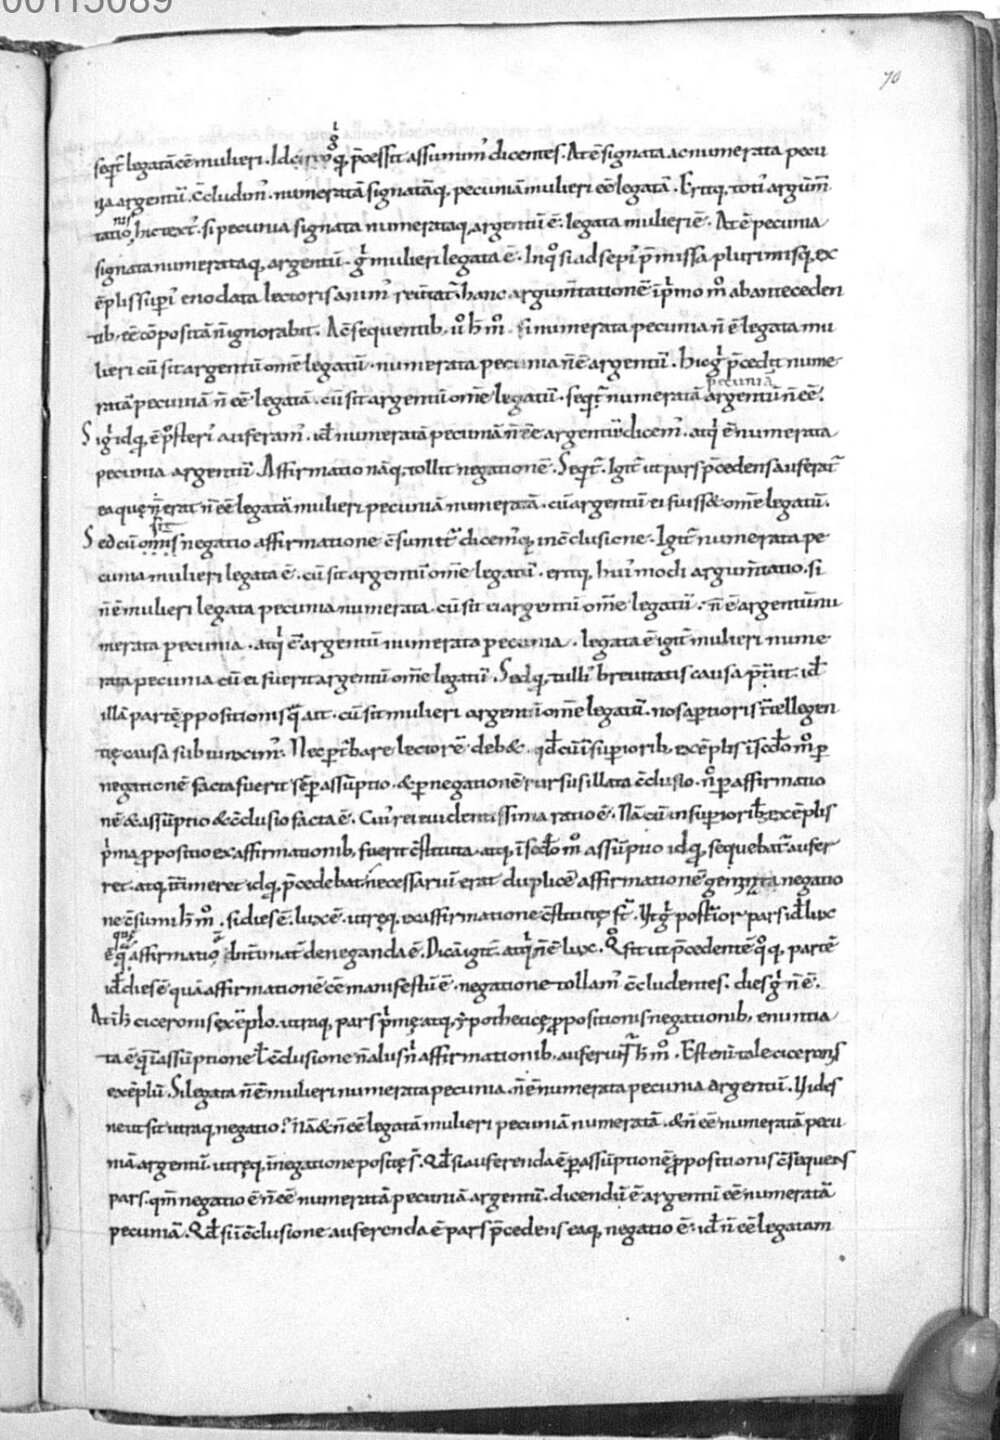 00115089
70
seqr̄ legatā eē mulieri. Idcirco q̨ p̄cessit assumim᾽ dicentes. At ē signata ac numerata pecu
nia argentū. c̄cludim᾽. numeratā signatāq; pecuniā mulieri eē legatā. Eritq; toti᾽ argum̄
tationis hic text᾽. si pecunia signata numerataq; argentū ē. legata mulieri ē. At ē pecunia
signata numerataq; argentū. gͥ mulieri legata ē. In qͦ si ad sepͥ p̄missa plurimisq; ex
ēplis supͥ enodata lectoris anim᾽ reuͥtat᾽. hanc argum̄tationē ī pͥmo mͦ ab anteceden
tib; eē cōpositā n̄ ignorabit. A c̄sequentib; uͦ h̄ mͦ. si numerata pecunia n̄ ē legata mu
lieri cū sit argentū om̄e legatū. numerata pecunia n̄ ē argentū. hic gͥ p̄cedit nume
ratā pecuniā n̄ eē legatā. cū sit argentū om̄e legatū. seqr̄ numeratā pecuniā argentū n̄ eē.
Si gͥ id q̨ ē posteri᾽ auferam᾽. id̄ numeratā pecuniā n̄ eē argentū dicem᾽. atqͥ ē numerata
pecunia argentū. Affirmatio nāq; tollit negationē. Seqr̄. Igit᾽ ut pars p̄cedens auferat᾽
ea quę n̄ erat n̄ eē legatā mulieri pecuniā numeratā. cū argentū ei fuiss& om̄e legatū.
Sed cū omnis negatio affirmatione c̄sumit᾽ dicem᾽q; in c̄clusione. Igit᾽ numerata pe
cunia mulieri legata ē. cū sit argentū om̄e legatū. eritq; hui᾽modi argum̄tatio. si
n̄ ē mulieri legata pecunia numerata cū sit ei argentū om̄e legatū. n̄ ē argentū nu
merata pecunia. atqͥ ē argentū numerata pecunia. legata ē igit᾽ mulieri nume
rata pecunia cū ei fuerit argentū om̄e legatū. Sed q̨ tulli᾽ breuitatis causa p̄t᾽iit. id̄
illā partē ppositionis q̄ ait. cū sit mulieri argentū om̄e legatū. nos aptioris intellegen
tię causa subiunxim᾽. Nec ptͥbare lectorē deb&. qd̄ cū ī superiorib; exēplis ī scd̄o mͦ p
negationē facta fuerit sēp assūptio. & p negationē rursus illata c̄clusio. nͦ p affirmatio
nē & assūptio & c̄clusio facta ē. Cui᾽ rei euidentissima ratio ē. Nā cū in superiorib; exēplis
pͥma ppositio ex affirmationib; fuerit c̄stituta. atq; ī scd̄o mͦ assūptio id q̨ sequebat᾽ aufer
ret. atq; intimeret id q̨ p̄cedebat. necessariū erat duplicē affirmationē gemina negatio
ne c̄sumi h̄ mͦ. si dies ē. lux ē. utręq; ex affirmatione c̄stitutę st̄. Ut gͥ posterior pars id̄ lux
ē quę affirmatio ē intimat᾽ deneganda ē. Dicā igit᾽. atqͥ n̄ ē lux. Qͦ fit ut p̄cedentē qͦq; partē
id̄ dies ē quā affirmationē eē manifestū ē. negatione tollam᾽ c̄cludentes. dies gͥ n̄ ē.
At ī h̄ ciceronis exēplo. utraq; pars pͥmę atq; ypotheticę ppositionis negationib; enuntia
ta ē. q̄ ī assūptione l̄ c̄clusione n̄ alus nͥ affirmationib; auferunt᾽ h̄ mͦ. Est enī tale ciceronis
exēplū. Si legata n̄ ē mulieri numerata pecunia. n̄ ē numerata pecunia argentū. Uides
ne ut sit utraq; negatio? Nā & n̄ eē legatā mulieri pecuniā numeratā. & n̄ eē numeratā pecu
niā argentū. utręq; in negatione positę s̄. Qd̄ si auferenda ē p assūptionē ppositionis c̄sequens
pars. qm̄ negatio ē n̄ eē numeratā pecuniā argentū. dicendū ē argentū eē numeratā
pecuniā. Qd̄ si ī c̄clusione auferenda ē pars p̄cedens eaq; negatio ē. id̄ n̄ eē legatam